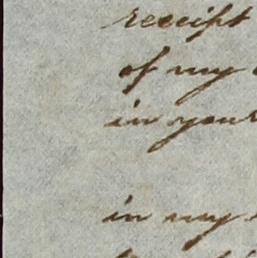 receipt
of my
in your
in my